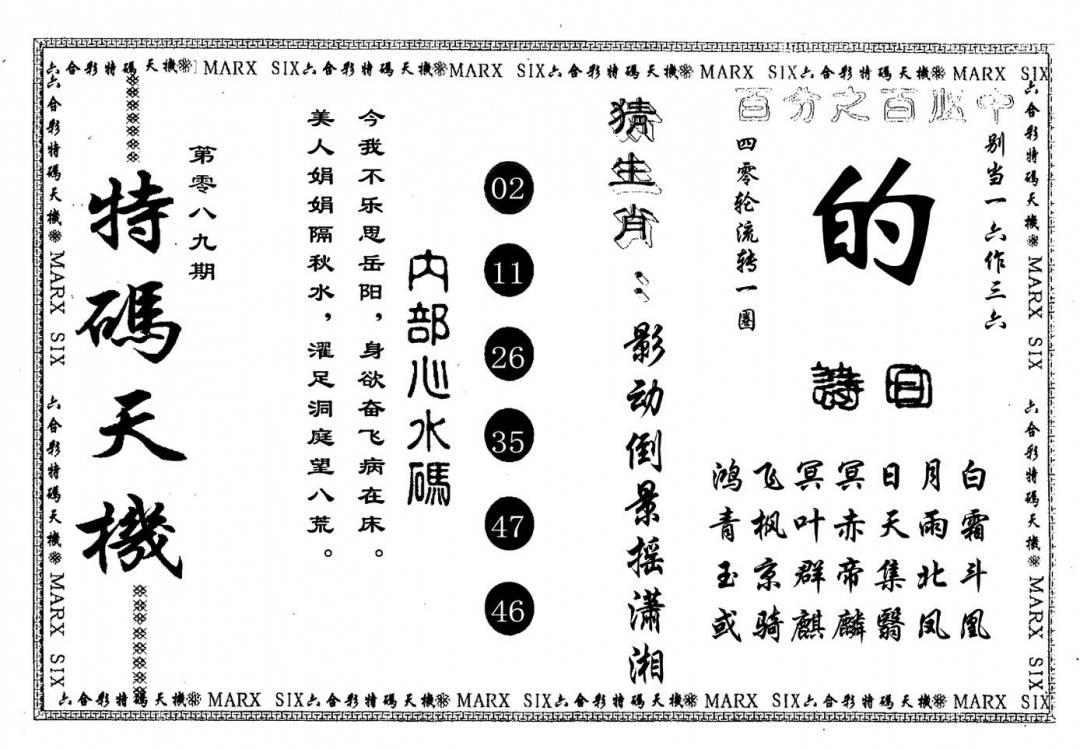 六合彩特碼天機❊ MARX SIX六合彩特碼天機❊MARX SIX六合彩特碼天機❊ MARX SIX六合彩特碼天機❊ MARX SIX
六合彩特碼天機❊ MARX SIX 六合彩特碼天機❊ MARX SIX
百分之百必中
别当一六作三六
的
四零轮流转一圈
詩曰
鸿飞冥冥日月白
青枫叶赤天雨霜
玉京群帝集北斗
或骑麒麟翳凤凰
猜生肖：影动倒景摇潇湘
02
11
26
35
47
46
内部心水碼
今我不乐思岳阳，身欲奋飞病在床。
美人娟娟隔秋水，濯足洞庭望八荒。
第零八九期
特碼天機
六合彩特碼天機❊ MARX SIX 六合彩特碼天機❊ MARX SIX
六合彩特碼天機❊ MARX SIX六合彩特碼天機❊ MARX SIX六合彩特碼天機❊ MARX SIX六合彩特碼天機❊ MARX SIX